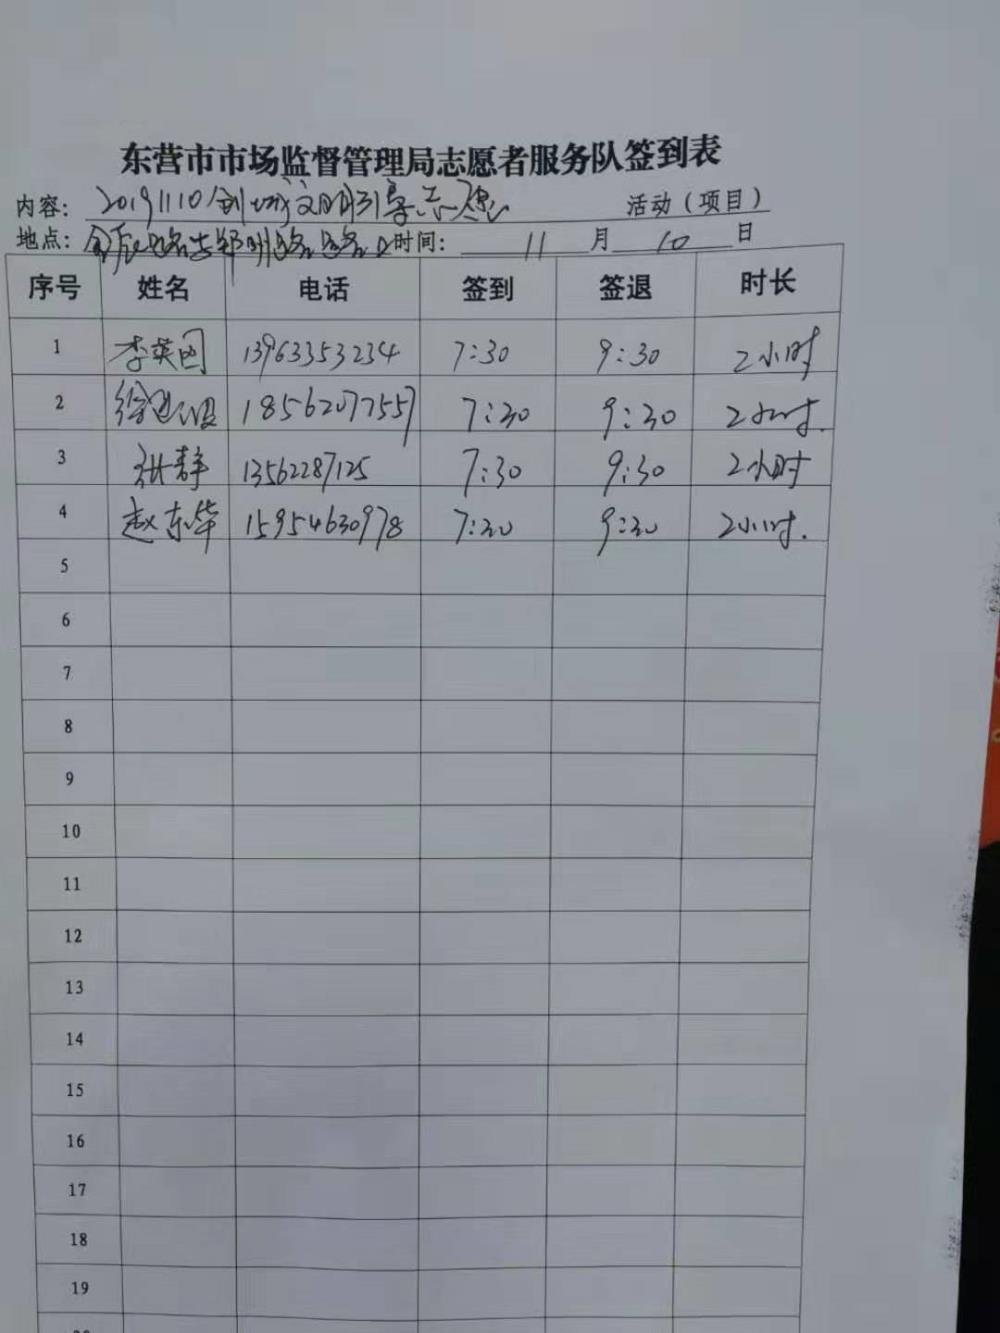 东营市市场监督管理局志愿者服务队签到表
内容: 20191110创城文明引导志愿 活动(项目)
地点: 路路口时间: 11月10日
序号 姓名 电话 签到 签退 时长
1 李英 13963353234 7:30 9:30 2小时
2 徐 18562077557 7:30 9:30 2小时.
3 张静 13562287125 7:30 9:30 2小时
4 赵东华 15954630978 7:30 9:30 2小时.
5
6
7
8
9
10
11
12
13
14
15
16
17
18
19